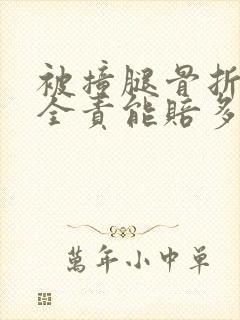 被撞腿骨折
全责能赔多
萬年小中单